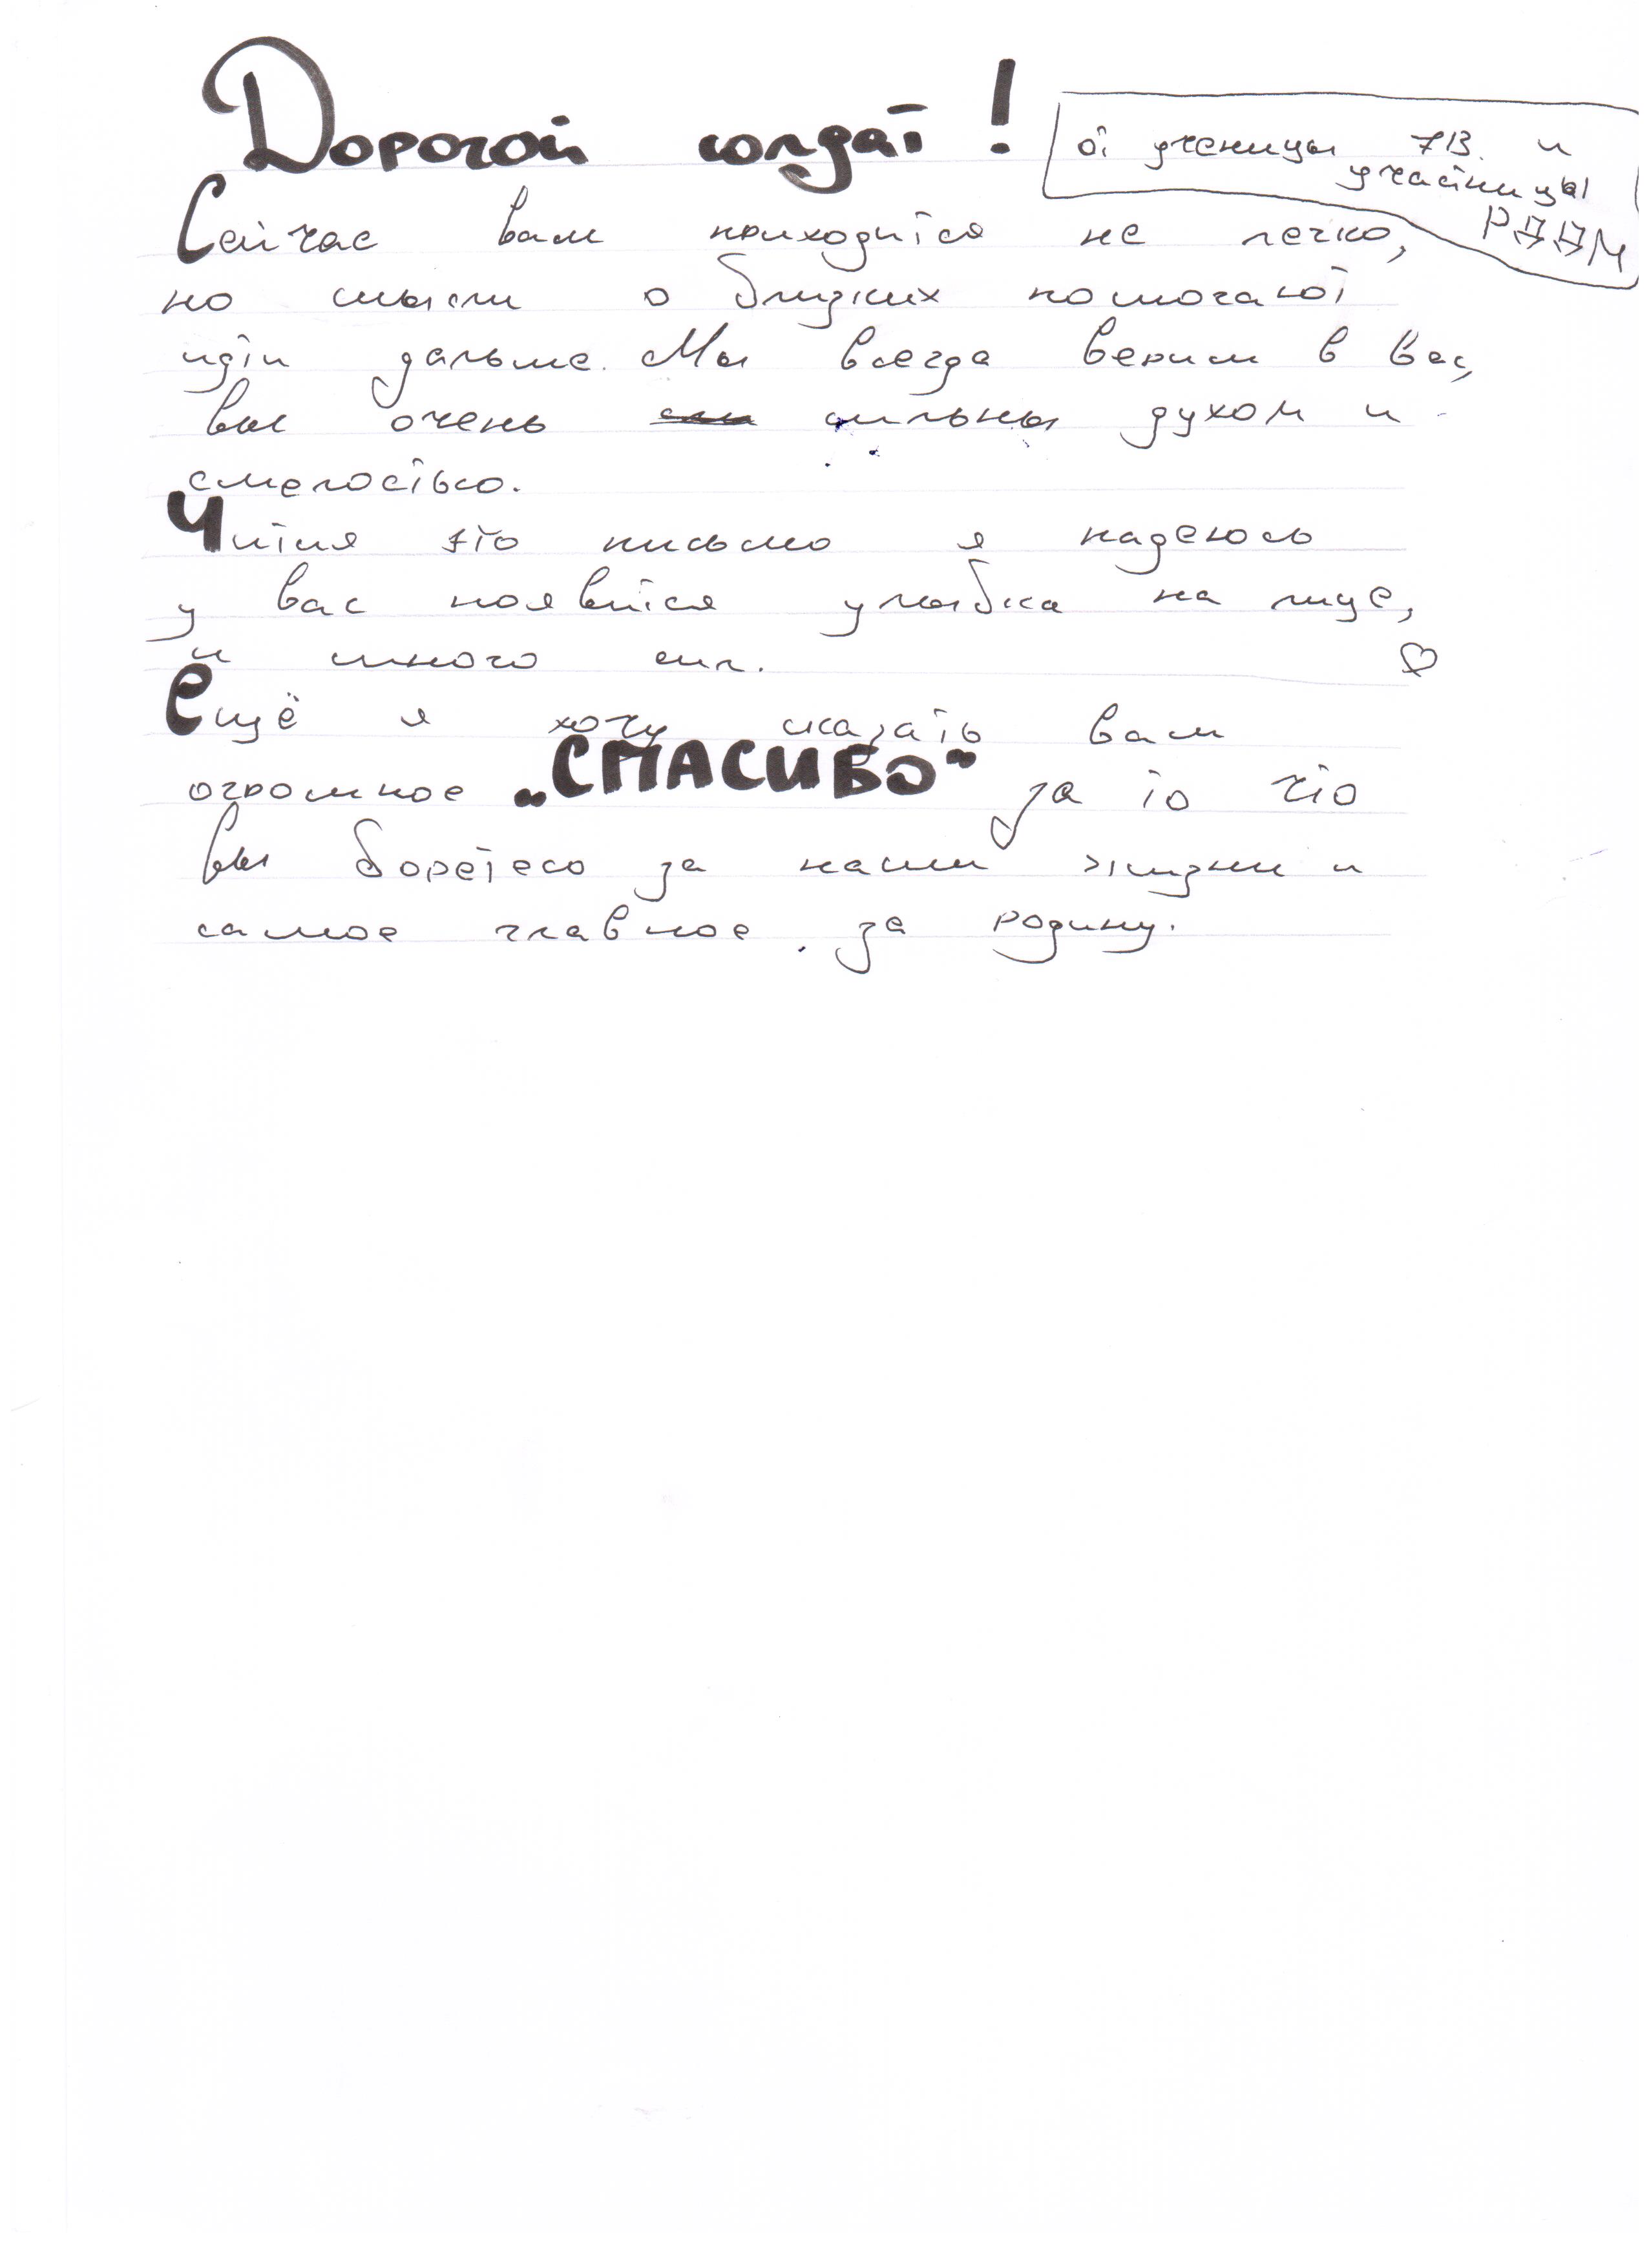 Дорогой солдат!
от ученицы 7В. и
участницы
РДДМ
Сейчас вам приходится не легко,
но мысли о близких помогают
идти дальше. Мы всегда верим в вас,
вы очень сильны духом и
смелостью.
Читая это письмо я надеюсь
у вас появится улыбка на лице,
и много сил.
Ещё я хочу сказать вам
огромное „СПАСИБО" за то что
вы боретесь за наши жизни и
самое главное за родину.